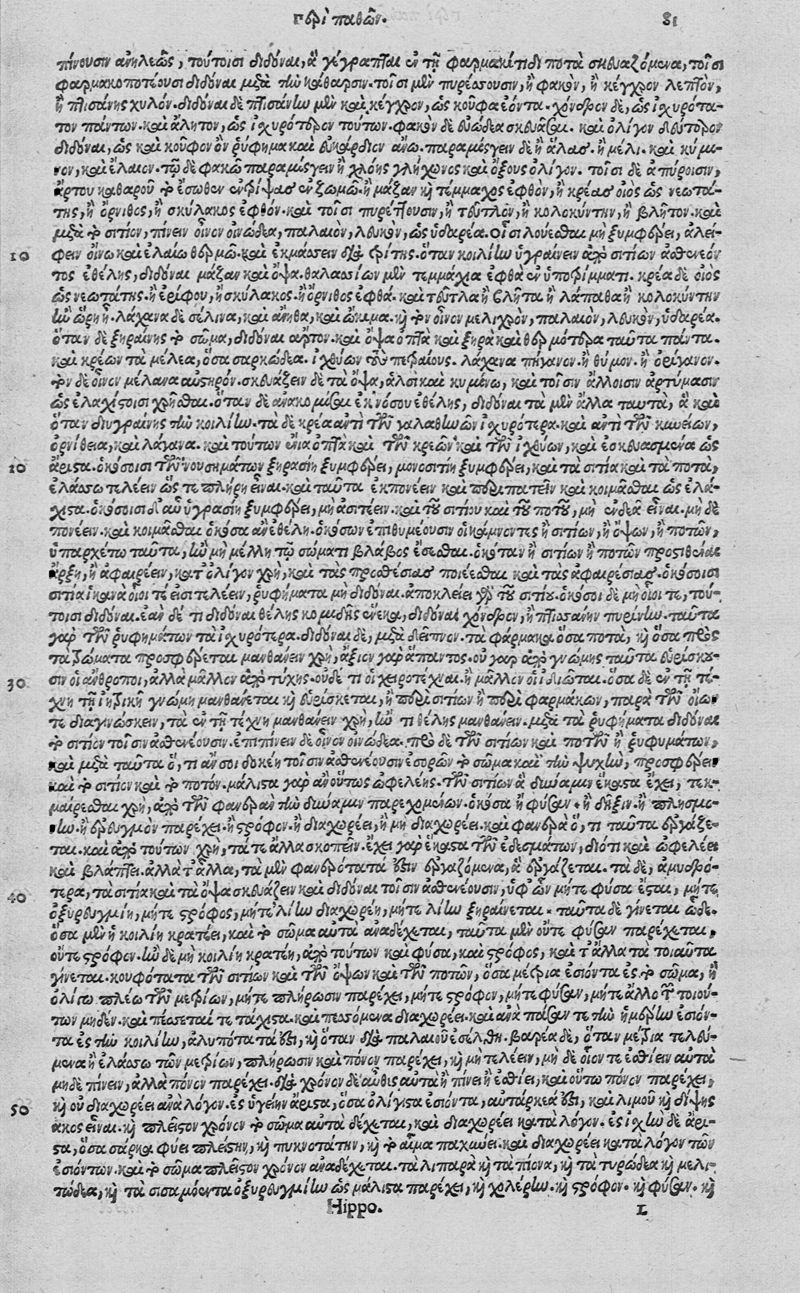 περὶ παθῶν. 81
πίνουσιν ἀπλεῶς, τούτοισι διδόναι, ἃ γέγραπται ἐν τῇ φαρμακίτιδι ποτὰ σκευαζόμενα, τοῖσι
φαρμακοποτέουσι διδόναι μετὰ τὴν κάθαρσιν· τοῖσι μὲν πυρέσσουσιν, ἢ φακὸν, ἢ κέγχρον λεπτὸν,
ἢ πτισάνης χυλόν. διδόναι δὲ πτισάνην μὲν καὶ κέγχρον, ὡς κοῦφα ἐόντα. χόνδρον δὲ, ὡς ἰσχυρότα-
τον πάντων. καὶ ἄλητον, ὡς ἰσχυρότερον τούτων. φακὸν δὲ εὐώδεα σκευάζειν. καὶ ὀλίγον δεύτερον
διδόναι, ὡς καὶ κοῦφον ὂν ῥύφημα καὶ εὐκάρδιον ἄνω. παραμίσγειν δὲ ἢ ἅλας. ἢ μέλι. καὶ κύμι-
νον, καὶ ἔλαιον. τῷ δὲ φακῷ παραμίσγειν ἢ χλόης γλήχωνος καὶ ὄξους ὀλίγον. τοῖσι δὲ ἀπύροισιν,
ἄρτου καθαροῦ τὸ ἔσωθεν ἐνθρίψας ἐν ζωμῷ. ἢ μᾶζαν καὶ τέμμαχος ἑφθὸν, ἢ κρέας οἰὸς ὡς νεωτά-
της, ἢ ὄρνιθος, ἢ σκύλακος ἑφθόν. καὶ τοῖσι πυρέττουσιν, ἢ τεῦτλον, ἢ κολοκύντην, ἢ βλῆτον. καὶ
μετὰ τὸ σιτίον, πίνειν οἶνον οἰνώδεα, παλαιὸν, λευκὸν, ὡς ὑδαρέα. Οἷσι λούεσθαι μὴ ξυμφέρει, ἀλεί-
10 φειν οἴνῳ καὶ ἐλαίῳ θερμῷ. καὶ ἐκμάσσειν διὰ τρίτης. ὅταν κοιλίην ὑγραίνειν ἀπὸ σιτίων ἀσθενέον-
τος ἐθέλῃς, διδόναι μᾶζαν καὶ ὄψα. θαλασσίων μὲν τεμμάχια ἑφθὰ ἐν ὑποτρίμματι. κρέα δὲ οἰὸς
ὡς νεωτάτης. ἢ ἐρίφου, ἢ σκύλακος. ἢ ὄρνιθος ἑφθά. καὶ τεῦτλα ἢ βλῆτα ἢ λάπαθα ἢ κολοκύντην
ἢν ὥρη ᾖ. λάχανα δὲ σέλινα, καὶ ἄνηθα, καὶ ὤκιμα. καὶ τὸν οἶνον μελιχρὸν, παλαιὸν, λευκὸν, ὑδαρέα.
ὅταν δὲ ξηραίνῃς τὸ σῶμα, διδόναι ἄρτον. καὶ ὄψα ὀπτὰ καὶ ξηρὰ καὶ θερμότερα ταῦτα πάντα.
καὶ κρεῶν τὰ μέλεα, ὅσα σαρκώδεα. ἰχθύων τοὺς πετραίους. λάχανα πήγανον. ἢ θύμον. ἢ ὀρίγανον.
τὸν δὲ οἶνον μέλανα αὐστηρόν. σκευάζειν δὲ τὰ ὄψα, ἁλσὶ καὶ κυμίνῳ, καὶ τοῖσιν ἄλλοισιν ἀρτύμασιν
ὡς ἐλαχίστοισι χρῆσθαι. ὅταν δὲ ἀνακομίζειν ἐκ νόσου ἐθέλῃς, διδόναι τὰ μὲν ἄλλα ταυτὰ, ἃ καὶ
ὅταν διυγραίνῃς τὴν κοιλίην. τὰ δὲ κρέα ἀντὶ τῶν γαλαθηνῶν ἰσχυρότερα. καὶ ἀντὶ τῶν κυνείων,
ὀρνίθεια, καὶ λάγανα. καὶ τούτων ἔνια ὀπτὰ καὶ τῶν κρεῶν καὶ τῶν ἰχθύων, καὶ ἐσκευασμένα ὡς
20 ἄριστα. ὁκόσοισι τῶν νουσημάτων ξηρασίη ξυμφέρει, μονοσιτίη ξυμφέρει, καὶ τὰ σιτία καὶ τὰ ποτὰ,
ἐλάσσω τελέειν ὥστε πλήρη εἶναι. καὶ ταῦτα ἐκπονέειν καὶ περιπατεῖν καὶ κοιμᾶσθαι ὡς ἐλά-
χιστα. ὁκόσοισι δ' αὖ ὑγρασίη ξυμφέρει, μὴ ἀσιτέειν. καὶ τοῦ σιτίου καὶ τοῦ ποτοῦ, μὴ ἐνδεᾶ εἶναι. μὴ δὲ
πονέειν. καὶ κοιμᾶσθαι ὁκόσα ἂν ἐθέλῃ. ὁκόσων ἐπιθυμέουσιν οἱ κάμνοντες ἢ σιτίων, ἢ ὄψων, ἢ ποτῶν,
ὑπαρχέτω ταῦτα, ἢν μὴ μέλλῃ τῷ σώματι βλάβος ἔσεσθαι. ὁκόταν ἢ σιτίων ἢ ποτῶν προστιθέναι
ἄρξῃ, ἢ ἀφαιρέειν, κατ' ὀλίγον χρὴ, καὶ τὰς προσθέσιας ποιέεσθαι καὶ τὰς ἀφαιρέσιας. ὁκόσοισι
σιτία ἱκανὰ οἷοί τε εἰσὶ τελέειν, ῥυφήματα μὴ διδόναι. ἀποκλείει γὰρ τοῦ σιτίου. ὁκόσοι δὲ μὴ οἷοί τε, τού-
τοισι διδόναι. ἐὰν δέ τι διδόναι θέλῃς κομιδῆς ἕνεκα, διδόναι χόνδρον, ἢ πτισάνην πυρίνην. ταῦτα
γὰρ τῶν ῥυφημάτων τὰ ἰσχυρότερα. διδόναι δὲ, μετὰ δεῖπνον. τὰ φάρμακα. ὅσα ποτὰ, καὶ ὅσα πρὸς
τὰ σώματα προσφέρεται μανθάνειν χρὴ, ἄξιον γὰρ ἅπαντος. οὐ γὰρ ἀπὸ γνώμης ταῦτα εὑρίσκου-
30 σιν οἱ ἄνθρωποι, ἀλλὰ μᾶλλον ἀπὸ τύχης. οὐδέ τι οἱ χειροτέχναι. ἢ μᾶλλον οἱ ἰδιῶται. ὅσα δὲ ἐν τῇ τέ-
χνῃ τῇ ἰητρικῇ γνώμῃ μανθάνεται καὶ εὑρίσκεται, ἢ περὶ σιτίων ἢ περὶ φαρμάκων, παρὰ τῶν οἵων
τε διαγνώσκειν, τὰ ἐν τῇ τέχνῃ μανθάνειν χρὴ, ἤν τι θέλῃς μανθάνειν. μετὰ τὰ ῥυφήματα διδόναι
τὸ σιτίον τοῖσιν ἀσθενέουσιν. ἐπιπίνειν δὲ οἶνον οἰνώδεα. πρὸ δὲ τῶν σιτίων καὶ ποτῶν ἢ ῥυφυμάτων,
καὶ μετὰ ταῦτα ὅ, τι ἄν σοι δοκέῃ τοῖσιν ἀσθενέουσιν ἐσορῶν τὸ σῶμα καὶ τὴν ψυχὴν, προσφέρειν
καὶ τὸ σιτίον καὶ τὸ ποτόν. μάλιστα γὰρ ἂν οὕτως ὠφελέῃς. τῶν σιτίων ἃ δύναμιν ἕκαστα ἔχει, τεκ-
μαίρεσθαι χρὴ, ἀπὸ τῶν φανερὰν τὴν δύναμιν παρεχομένων. ὁκόσα ἢ φύσαν. ἢ δῆξιν. ἢ πλησμο-
νὴν. ἢ ἐρευγμὸν παρέχει. ἢ στρόφον. ἢ διαχωρέει, ἢ μὴ διαχωρέει. καὶ φανερὰ ὅ, τι ταῦτα ἐργάζε-
ται. καὶ ἀπὸ τούτων χρὴ, τά τε ἄλλα σκοπεῖν. ἔχει γὰρ ἕκαστα τῶν ἐδεσμάτων, διότι καὶ ὠφελέει
καὶ βλάπτει. ἀλλὰ τ' ἄλλα, τὰ μὲν φανερώτατά ἐστιν ἐργαζόμενα, ἃ ἐργάζεται. τὰ δὲ, ἀμυδρό-
40 τερα, τὰ σιτία καὶ τὰ ὄψα σκευάζειν καὶ διδόναι τοῖσιν ἀσθενέουσιν, ὑφ' ὧν μήτε φῦσα ἔσται, μήτε
ὀξυρευγμίη, μήτε στρόφος, μήτε λίην διαχωρέῃ, μήτε λίην ξηραίνεται. ταῦτα δὲ γίνεται ὧδε.
ὅσα μὲν ἡ κοιλίη κρατέει, καὶ τὸ σῶμα αὐτὰ ἀναδέχεται, ταῦτα μὲν οὔτε φῦσαν παρέχεται,
οὔτε στρόφον. ἢν δὲ μὴ κοιλίη κρατέῃ, ἀπὸ τούτων καὶ φῦσα, καὶ στρόφος, καὶ τ' ἄλλα τὰ τοιαῦτα
γίνεται. κουφότατα τῶν σιτίων καὶ τῶν ὄψων καὶ τῶν ποτῶν, ὅσα μέτρια ἐσιόντα ἐς τὸ σῶμα, ἢ
ὀλίγῳ πλέω τῶν μετρίων, μήτε πλήρωσιν παρέχει, μήτε στρόφον, μήτε φῦσαν, μήτε ἄλλο τῶν τοιού-
των μηδέν. καὶ πέσσεταί τε τάχιστα. καὶ πεσσόμενα διαχωρέει. καὶ ἀνὰ πᾶσάν τε τὴν ἡμέρην ἐσιόν-
τα ἐς τὴν κοιλίην, ἀλυπότατά ἐστι, καὶ ὅταν διὰ παλαιοῦ ἐσέλθῃ. βαρέα δὲ, ὅταν μέτρια τελεύ-
μενα ἢ ἐλάσσω τῶν μετρίων, πλήρωσιν καὶ πόνον παρέχει, καὶ μὴ τελέειν, μὴ δὲ οἷόν τε ἐσθίειν αὐτὰ
μηδὲ πίνειν, ἀλλὰ πόνον παρέχει. διὰ χρόνου δὲ αὖθις αὐτὰ ἢ πίνει ἢ ἐσθίει, καὶ οὕτω πόνον παρέχει,
50 καὶ οὐ διαχωρέει ἀνὰ λόγον. ἐς ὑγείην ἄριστα, ὅσα ὀλίγιστα ἐσιόντα, αὐτάρκεά ἐστι, καὶ λιμοῦ καὶ δίψης
ἄκος εἶναι. καὶ πλεῖστον χρόνον τὸ σῶμα αὐτὰ δέχεται, καὶ διαχωρέει κατὰ λόγον. ἐς ἰσχὺν δὲ ἄρι-
στα, ὅσα σάρκα φύει πλείστην, καὶ πυκνοτάτην, καὶ τὸ αἷμα παχύνει. καὶ διαχωρέει κατὰ λόγον τῶν
ἐσιόντων. καὶ τὸ σῶμα πλεῖστον χρόνον ἀναδέχεται. τὰ λιπαρὰ καὶ τὰ πίονα, καὶ τὰ τυρώδεα καὶ μελι-
τώδεα, καὶ τὰ σισαμόεντα ὀξυρευγμίην ὡς μάλιστα παρέχει, καὶ χολέρην. καὶ στρόφον. καὶ φῦσαν. καὶ
Hippo. L